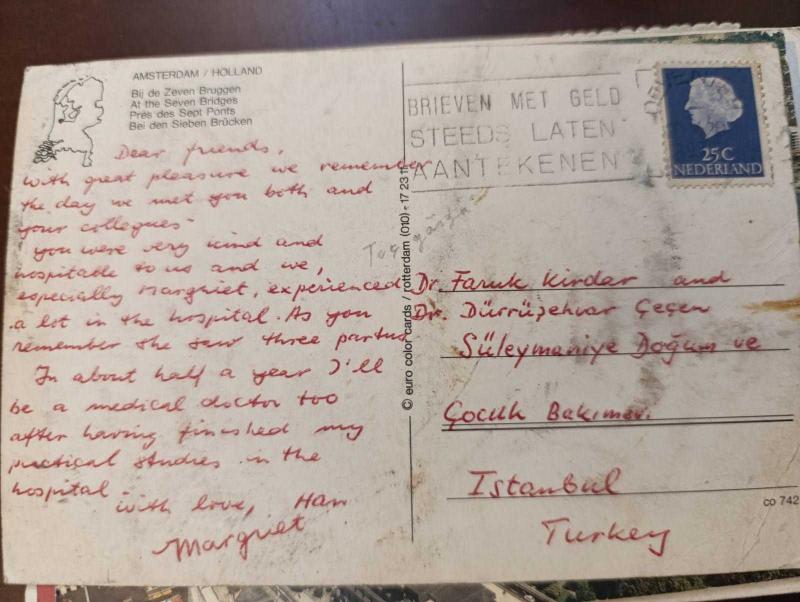 AMSTERDAM / HOLLAND
Bij de Zeven Bruggen
At the Seven Bridges
Près des Sept Ponts
Bei den Sieben Brücken
Dear friends,
With great pleasure we remember
the day we met you both and
your collegues
you were very kind and
hospitable to us and we,
especially Margriet, experienced
a lot in the hospital. As you
remember she saw three partus
In about half a year I'll
be a medical doctor too
after having finished my
practical studies in the
hospital
With love, Han
Margriet
© euro color cards / rotterdam (010) - 17 23 11
BRIEVEN MET GELD
STEEDS LATEN
AANTEKENEN
25C
NEDERLAND
Dr. Faruk Kirdar and
Dr. Dürrüşehvar Geçen
Süleymaniye Doğum ve
Çocuk Bakımevi
Istanbul
Turkey
co 742